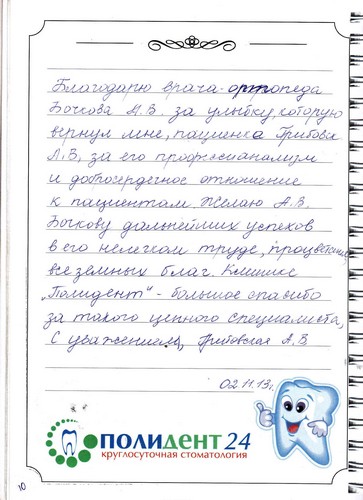 Благодарю врача-ортопеда
Бочкова А.В. за улыбку, которую
вернул мне, пациенка Грибовск
Л.В, за его профссианализм
и добросердечное отношение
к пациентам. Желаю А.В.
Бочкову дальнейших успехов
в его нелегком труде, процветания,
все земных благ. Клинике
„Полидент“ - большое спасибо
за такого ценного специалиста,
С уважением, Грибовская Л.В
02.11.13г.
ПОЛИДЕНТ 24
круглосуточная стоматология
10